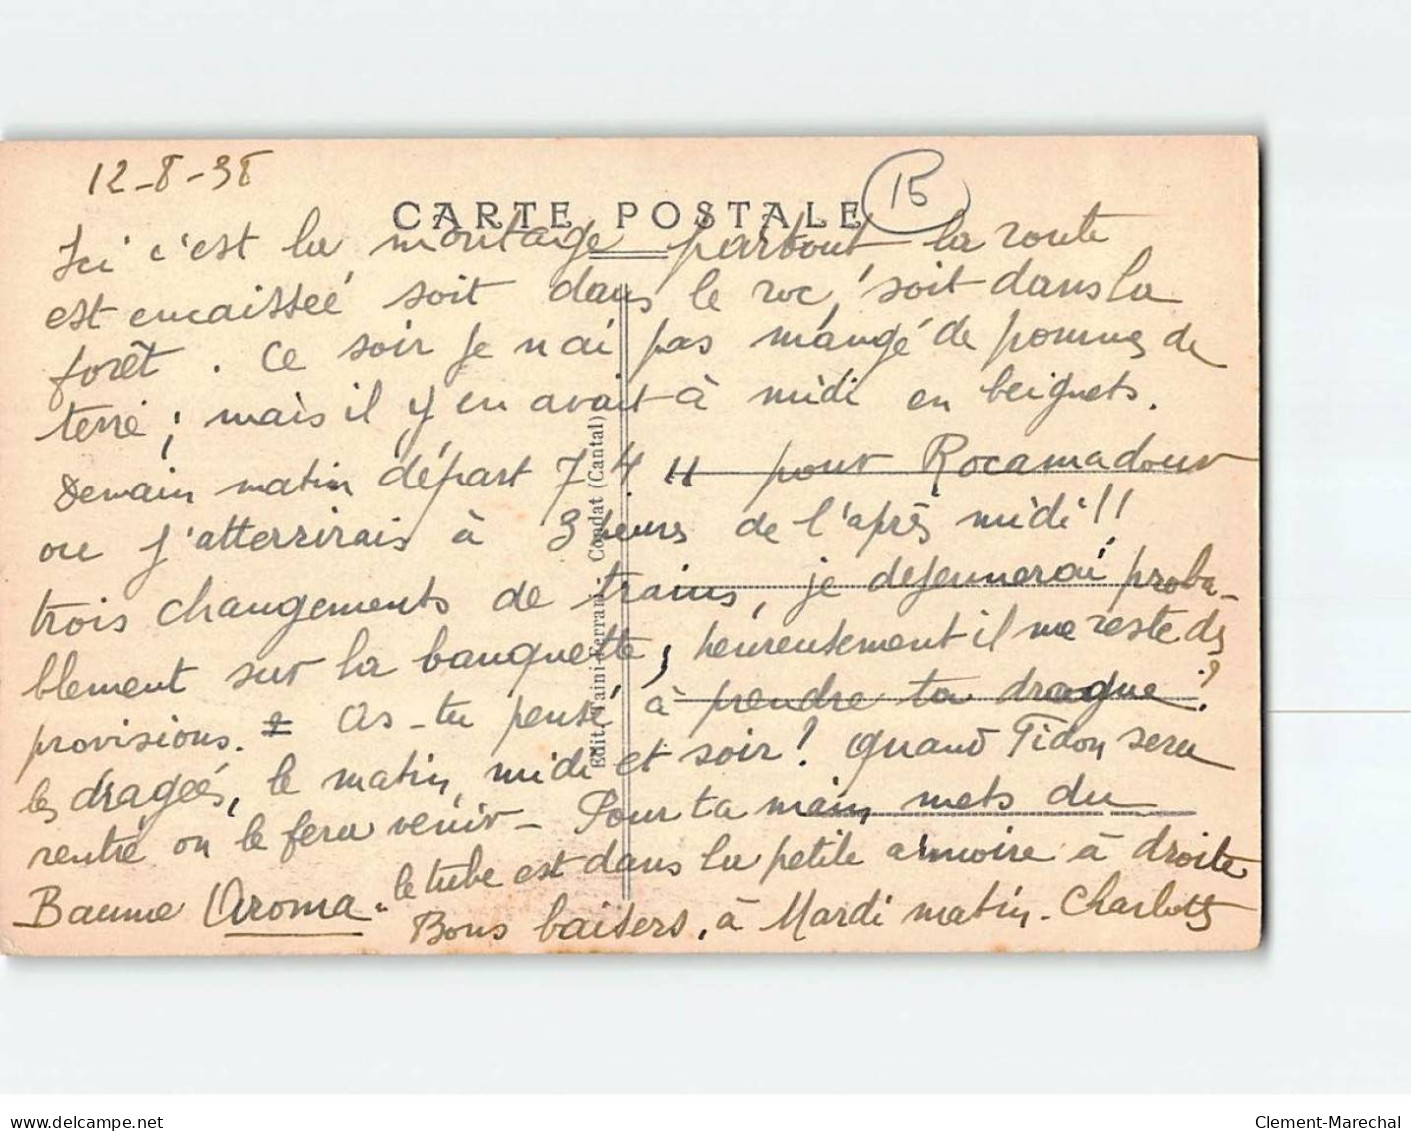 12-8-38
15
CARTE POSTALE
Ici c'est la montagne partout la route
est encaisseé soit dans le roc, soit dans la
forêt. Ce soir je n'ai pas mangé de pommes de
terre ; mais il y en avait à midi en beignets.
Demain matin départ 7 4 11 pour Rocamadour
ou j'atterrirais à 3 heures de l'après midi !!
trois changements de trains, je dejeunerai proba-
blement sur la banquette, heureusement il me reste des
provisions. = As-tu pensé à prendre ta drague ?
les dragées, le matin, midi et soir ! Quand Tidon sera
rentré on le fera venir - Pour ta main mets du
Baume Aroma - le tube est dans la petite armoire à droite
Bons baisers, à Mardi matin. Charlotte
Edit. Taini-Ferrani - Condat (Cantal)
www.delcampe.net
Clement-Marechal